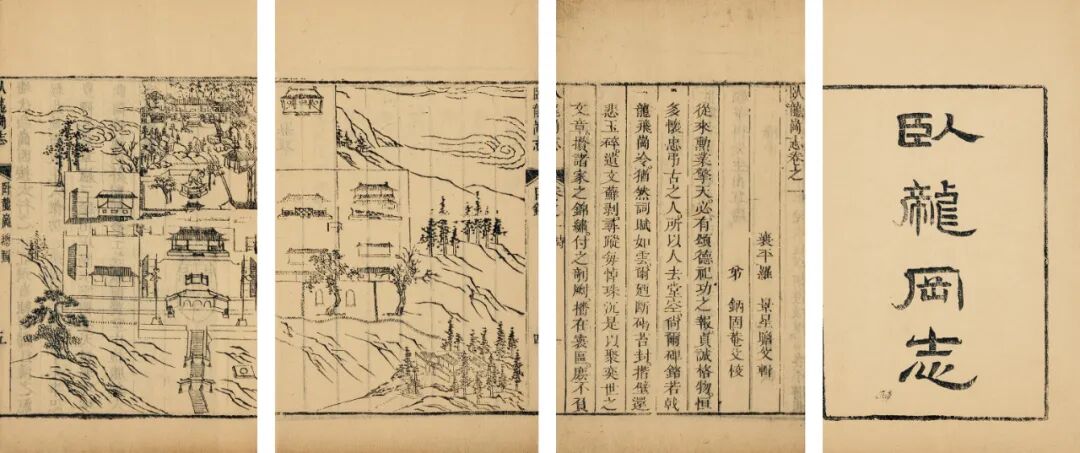 臥龍岡志
臥龍崗志卷之一
襄平羅 景星瞻父輯
弟 鈵固菴父校
從來勳業擎天必有頌德祀功之報貞誠格物恒
多懷忠弔古之人所以人去堂空尙爾碑銘若戟
龍飛崗冷猶然詞賦如雲爾廼斷碣苔封搨壁還
悲玉碎遺文蘚剝尋蹤每悼珠沉是以聚奕世之
文章攢諸家之錦繡付之剞劂播在寰區庶不負
臥龍崗志
四
臥龍崗志
臥龍崗總圖
五